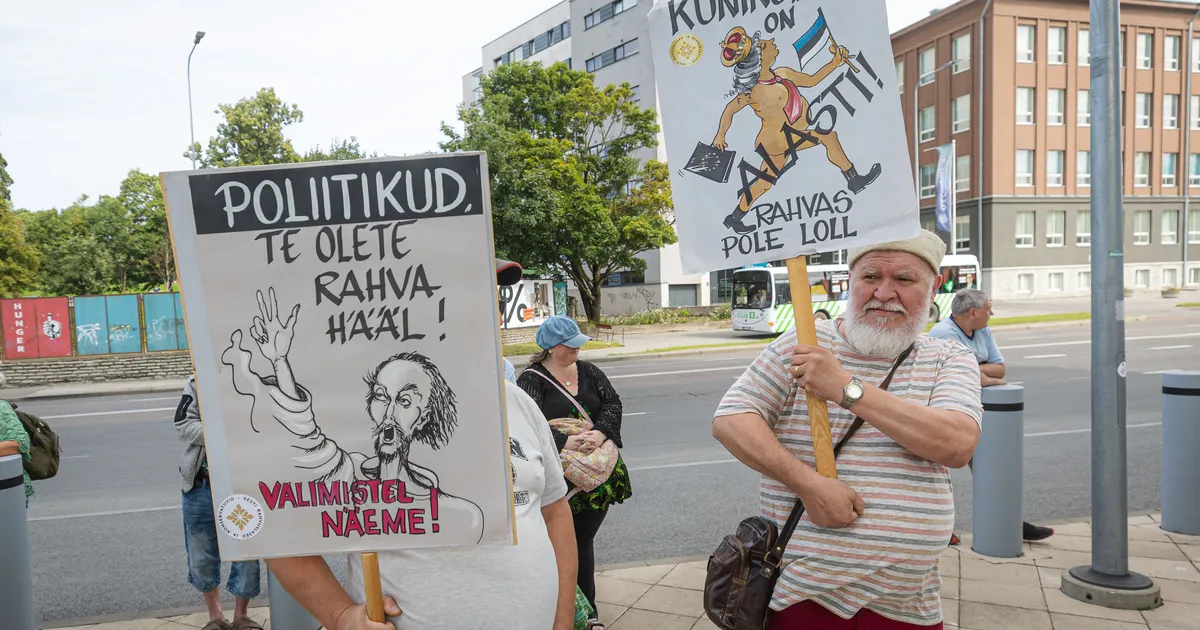 POLIITIKUD,
TE OLETE
RAHVA
HÄÄL!
VALIMISTEL
NÄEME!
ON
ALASTI!
RAHVAS
POLE LOLL
HUNGER